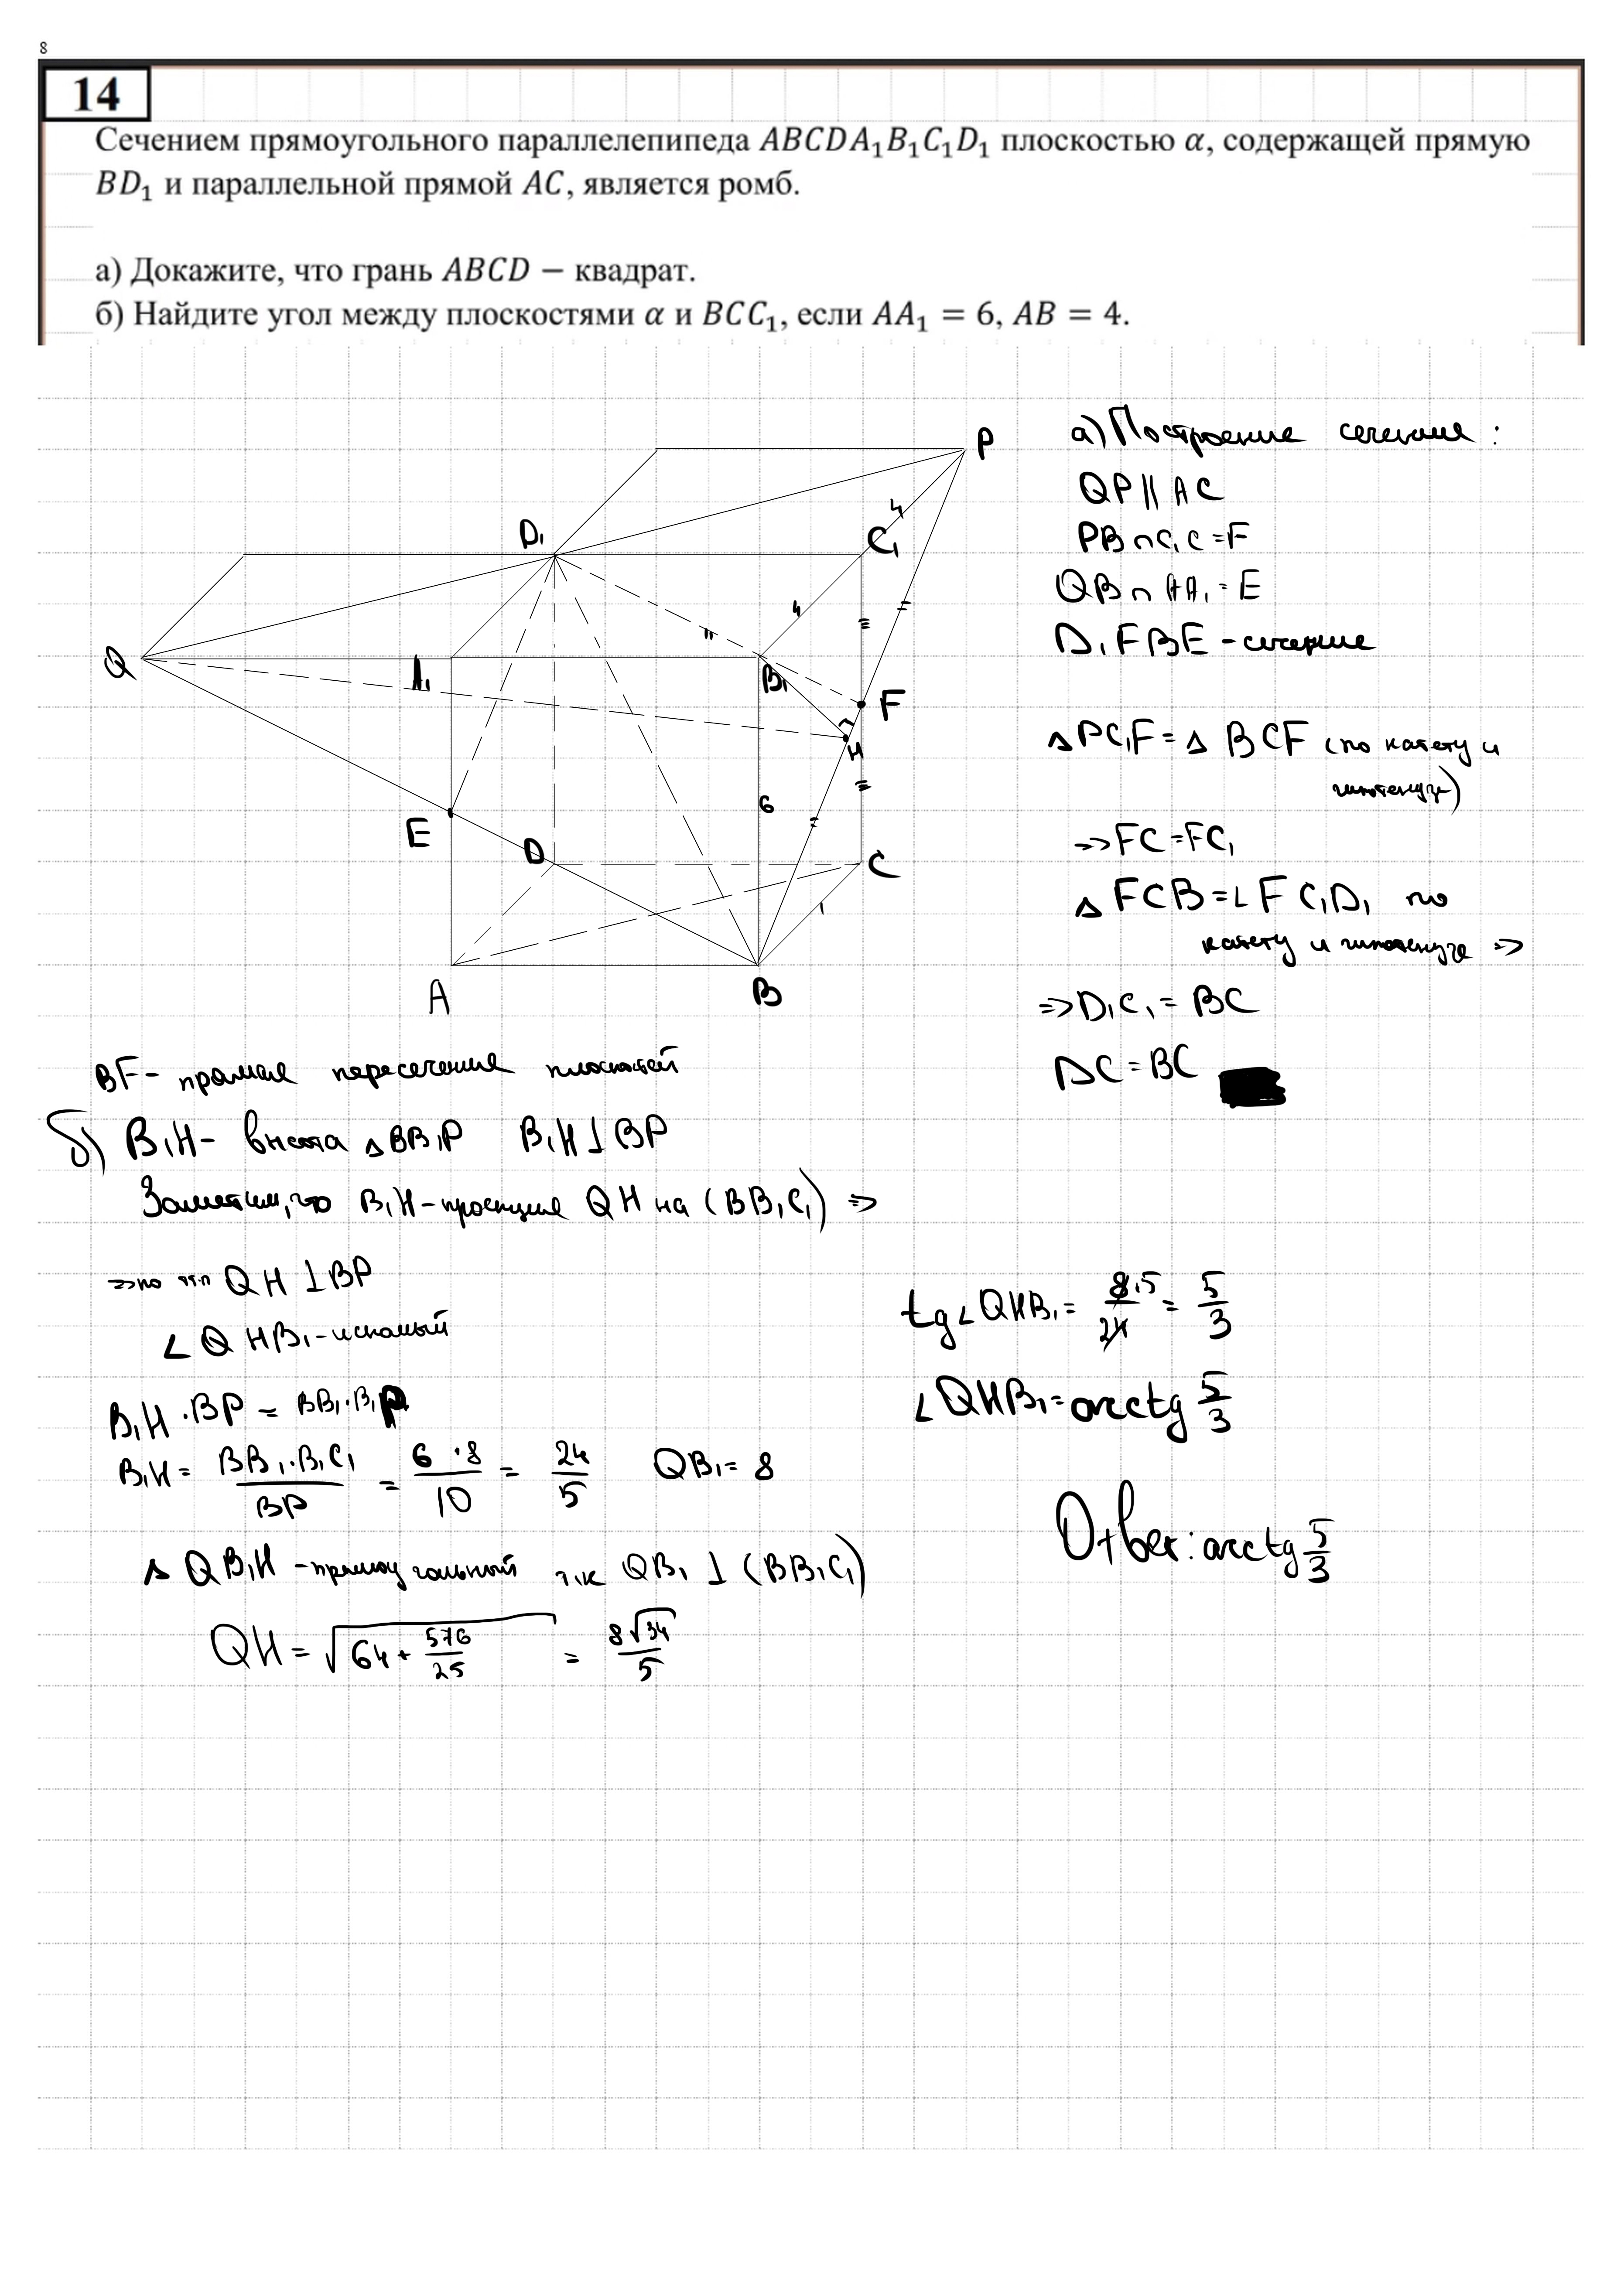 8
14
Сечением прямоугольного параллелепипеда ABCDA₁B₁C₁D₁ плоскостью α, содержащей прямую
BD₁ и параллельной прямой AC, является ромб.
а) Докажите, что грань ABCD − квадрат.
б) Найдите угол между плоскостями α и BCC₁, если AA₁ = 6, AB = 4.
P
D₁
C₁
4
4
Q
A₁
B₁
F
H
6
E
D
C
A
B
а) Построение сечения :
QP || AC
PB ∩ C₁C = F
QB ∩ AA₁ = E
D₁FBE - сечение
△PC₁F = △ BCF (по катету и
гипотенузе)
=> FC = FC₁
△ FCB = ∠ F C₁D₁ по
катету и гипотенузе =>
=> D₁C₁ = BC
DC = BC
BF - прямая пересечения плоскостей
б) B₁H - высота △BB₁P B₁H ⊥ BP
Заметим, что B₁H - проекция QH на (BB₁C₁) =>
=> по ттп QH ⊥ BP
∠ Q HB₁ - искомый
B₁H · BP = BB₁ · B₁P
B₁H = BB₁·B₁C₁ / BP = 6·8 / 10 = 24/5 QB₁ = 8
△ QB₁H - прямоугольный т.к QB₁ ⊥ (BB₁C₁)
QH = √(64 + 576/25) = 8√34 / 5
tg∠QHB₁ = 8·5 / 24 = 5/3
∠QHB₁ = arctg 5/3
Ответ: arctg 5/3